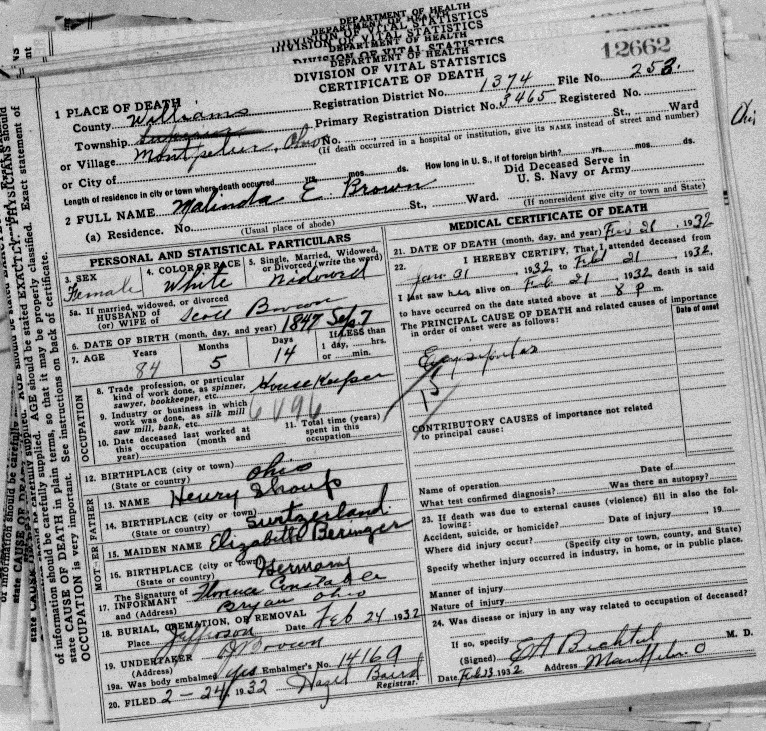 DEPARTMENT OF HEALTH
DIVISION OF VITAL STATISTICS
DEPARTMENT OF HEALTH
DIVISION OF VITAL STATISTICS
DEPARTMENT OF HEALTH
DIVISION OF VITAL STATISTICS
CERTIFICATE OF DEATH
12662
1 PLACE OF DEATH
County Williams Registration District No. 1374 File No. 253.
Township Primary Registration District No. 3465 Registered No.
or Village Montpelier, Ohio No. St., Ward
or City of (If death occurred in a hospital or institution, give its NAME instead of street and number)
Length of residence in city or town where death occurred yrs. mos. ds. How long in U. S., if of foreign birth? yrs. mos. ds.
2 FULL NAME Malinda E. Brown Did Deceased Serve in U. S. Navy or Army
(a) Residence. No. St., Ward.
(Usual place of abode) (If nonresident give city or town and State)
PERSONAL AND STATISTICAL PARTICULARS
3. SEX Female
4. COLOR OR RACE White
5. Single, Married, Widowed, or Divorced (write the word) Widowed
5a. If married, widowed, or divorced
HUSBAND of
(or) WIFE of Scott Brown
6. DATE OF BIRTH (month, day, and year) 1847 Sep 7
7. AGE Years 84 Months 5 Days 14 If LESS than 1 day, hrs. or min.
OCCUPATION
8. Trade, profession, or particular kind of work done, as spinner, sawyer, bookkeeper, etc. Housekeeper
9. Industry or business in which work was done, as silk mill saw mill, bank, etc.
6496
10. Date deceased last worked at this occupation (month and year)
11. Total time (years) spent in this occupation
12. BIRTHPLACE (city or town) Ohio
(State or country)
FATHER
13. NAME Henry Shoup
14. BIRTHPLACE (city or town) Switzerland
(State or country)
MOTHER
15. MAIDEN NAME Elizabeth Beringer
16. BIRTHPLACE (city or town) Germany
(State or country)
17. The Signature of INFORMANT Florence Constable
and (Address) Bryan Ohio
18. BURIAL, CREMATION, OR REMOVAL
Place Jefferson Date Feb 24 1932
19. UNDERTAKER
(Address)
19a. Was body embalmed yes Embalmer's No. 14169
20. FILED 2-24, 1932 Hazel Baird
Registrar.
MEDICAL CERTIFICATE OF DEATH
21. DATE OF DEATH (month, day, and year) Feb 21, 1932
22. I HEREBY CERTIFY, That I attended deceased from
Jan. 31, 1932 to Feb 21, 1932,
I last saw her alive on Feb. 21, 1932 death is said
to have occurred on the date stated above at 8 P m.
The PRINCIPAL CAUSE OF DEATH and related causes of importance
in order of onset were as follows:
Date of onset
15
CONTRIBUTORY CAUSES of importance not related
to principal cause:
Name of operation Date of
What test confirmed diagnosis? Was there an autopsy?
23. If death was due to external causes (violence) fill in also the following:
Accident, suicide, or homicide? Date of injury , 19
Where did injury occur?
(Specify city or town, county, and State)
Specify whether injury occurred in industry, in home, or in public place.
Manner of injury
Nature of injury
24. Was disease or injury in any way related to occupation of deceased?
If so, specify
(Signed) E A Bechtol M. D.
Date Feb 23 1932 Address Montpelier O